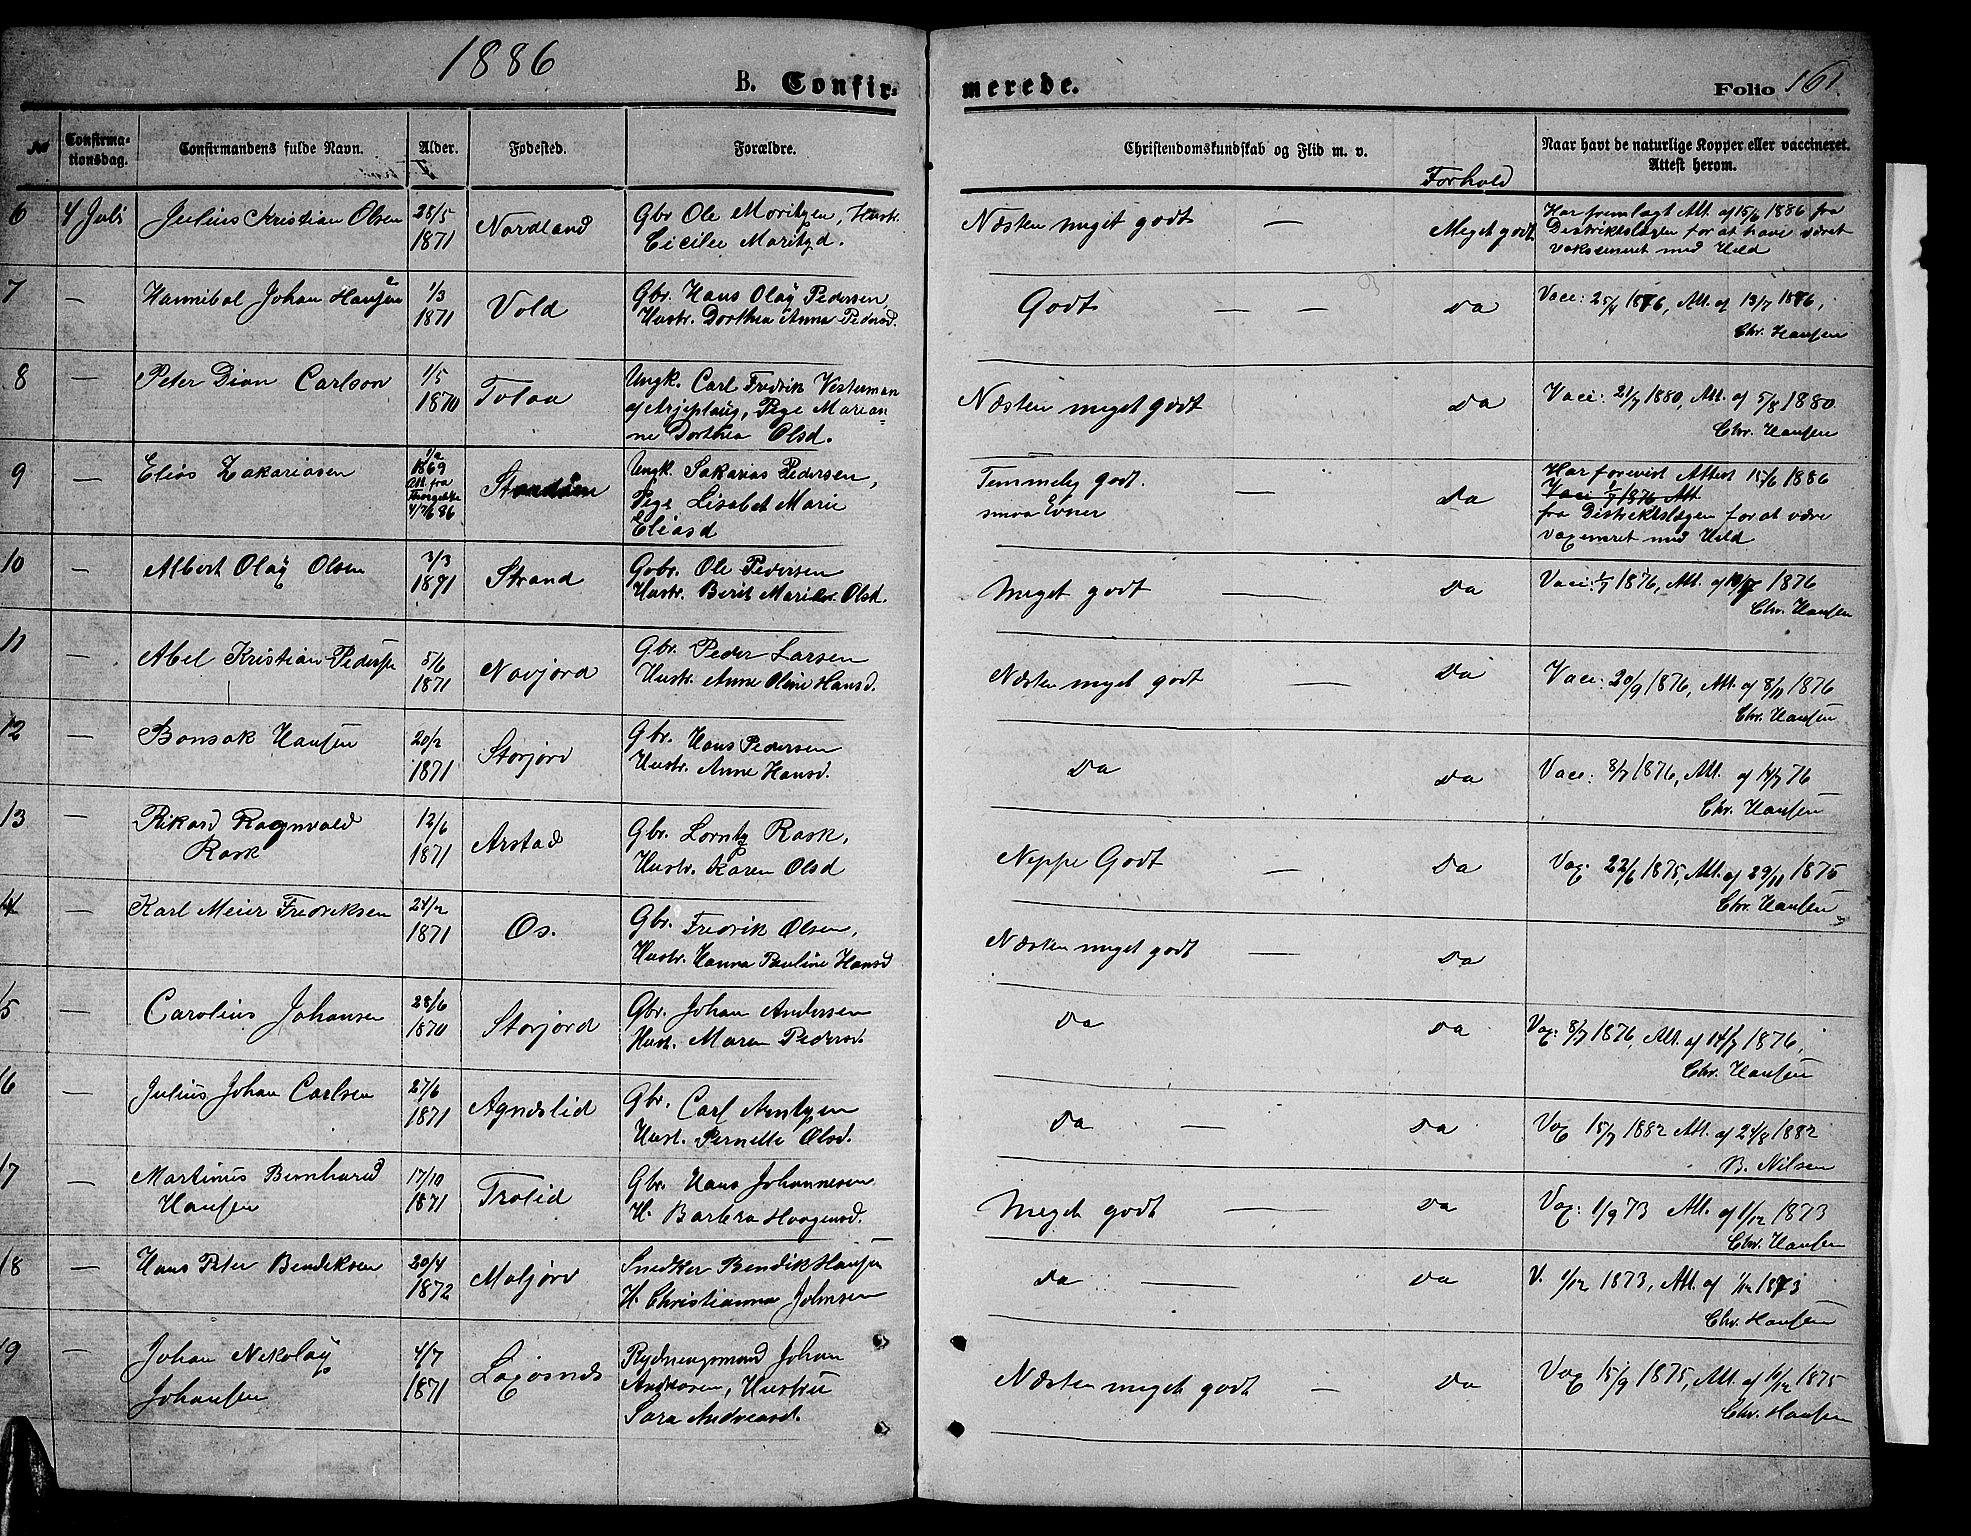 1886
B. Confirmerede.
Folio 161.
No
Confirmationsdag.
Confirmandens fulde Navn.
Alder.
Fødested.
Forældre.
Christendomskundskab og Flid m. v.
Forhold
Naar havt de naturlige Kopper eller vaccineret.
Attest herom.
6 4 Juli Julius Kristian Olsen 28/5 1871 Nordland
Gbr Ole Moritzen, Hustr.
Cicilie Moritzd.
Næsten meget godt — Meget godt
Har fremlagt Att. af 15/6 1886 fra
Distriktslægen for at have været
vaksineret med Held
7 — Hannibal Johan Hansen 1/3 1871 Vold
Gbr. Hans Olaÿ Pedersen,
Hustr. Dorthea Anna Pedersd.
Godt — — da
Vacc: 25/4 1876, Att. af 13/7 1876,
Chr. Hansen
8 — Peter Dian Carlson 1/5 1870 Tolaa
Ungk. Carl Fredrik Vesterman
af Arjeplaug, Pige Marian-
ne Dorthea Olsd.
Næsten meget godt — da
Vacc: 21/7 1880, Att. af 5/8 1880.
Chr. Hansen
9 — Elias Zakariasen 1869 Att. fra 4/7/6 86
Ungk. Sakarias Pedersen,
Pige Lisabet Marie
Eliasd
Temmelig godt. — da
smaa Evner
Har forevist Attest 15/6 1886
Vacc 1/7 1876 Att
fra Distriktslægen for at være
vaxineret med Held
10 — Albert Olaÿ Olsen 3/3 1871 Strand
Gbr. Ole Pedersen
Hustr. Berit Marie Olsd.
Meget godt — da
Vacc: 1/7 1876, Att. af 1876
Chr. Hansen
11 — Abel Kristian Peders 5/6 1871 Novjord
Gbr. Peder Larsen
Hustr. Anne Oline Hansd.
Næsten meget godt — da
Vacc: 20/9 1876, Att. af 8/11 1876
Chr. Hansen
12 — Bonsak Hansen 20/2 1871 Storjord
Gbr. Hans Pedersen
Hustr. Anne Hansd.
da da
Vacc: 8/7 1876, Att. af 14/7 76
Chr. Hansen
13 — Rikard Ragnvald
Rask
12/6 1871 Arstad
Gbr. Lorntz Rask,
Hustr. Karen Olsd
Neppe Godt — da
Vax. 22/6 1875, Att. af 29/11 1875
Chr. Hansen
14 — Karl Meier Fredriksen 24/2 1871 Os.
Gbr. Fredrik Olsen,
Hustr. Hanna Pauline Hansd
Næsten meget godt — da
15 — Carolius Johansen 28/6 1870 Storjord
Gbr. Johan Andersen
Hust. Maren Pedersd.
da da
Vax. 8/7 1876, Att. af 14/7 1876,
Chr. Hansen
16 — Julius Johan Carlsen 27/6 1871 Agneslid
Gbr. Carl Arntzen
Hust. Pernelle Olsd.
da — da
Vax 15/7 1882 Att. af 24/8 1882
B. Nilsen
17 — Martinus Bernhard
Hansen
17/10 1871 Trolid
Gbr. Hans Johannesen
H. Barbra Haagensd.
Meget godt — da
Vax: 1/9 73 Att. af 1/12 1873
Chr. Hansen
18 — Hans Peter Bendiksen 20/4 1872 Moljord
Snedker Bendik Hansen
H. Christianna Johnsen
da — da
V. 1/12 1873, Att. af 1/12 1873
Chr. Hansen
19 — Johan Nikolaÿ
Johansen
4/7 1871
Rydningsmand Johan
Andreasen, Hustru
Sara Andreasd.
Næsten meget godt — da
Vax 15/9 1875, Att. af 10/12 1875
Chr. Hansen